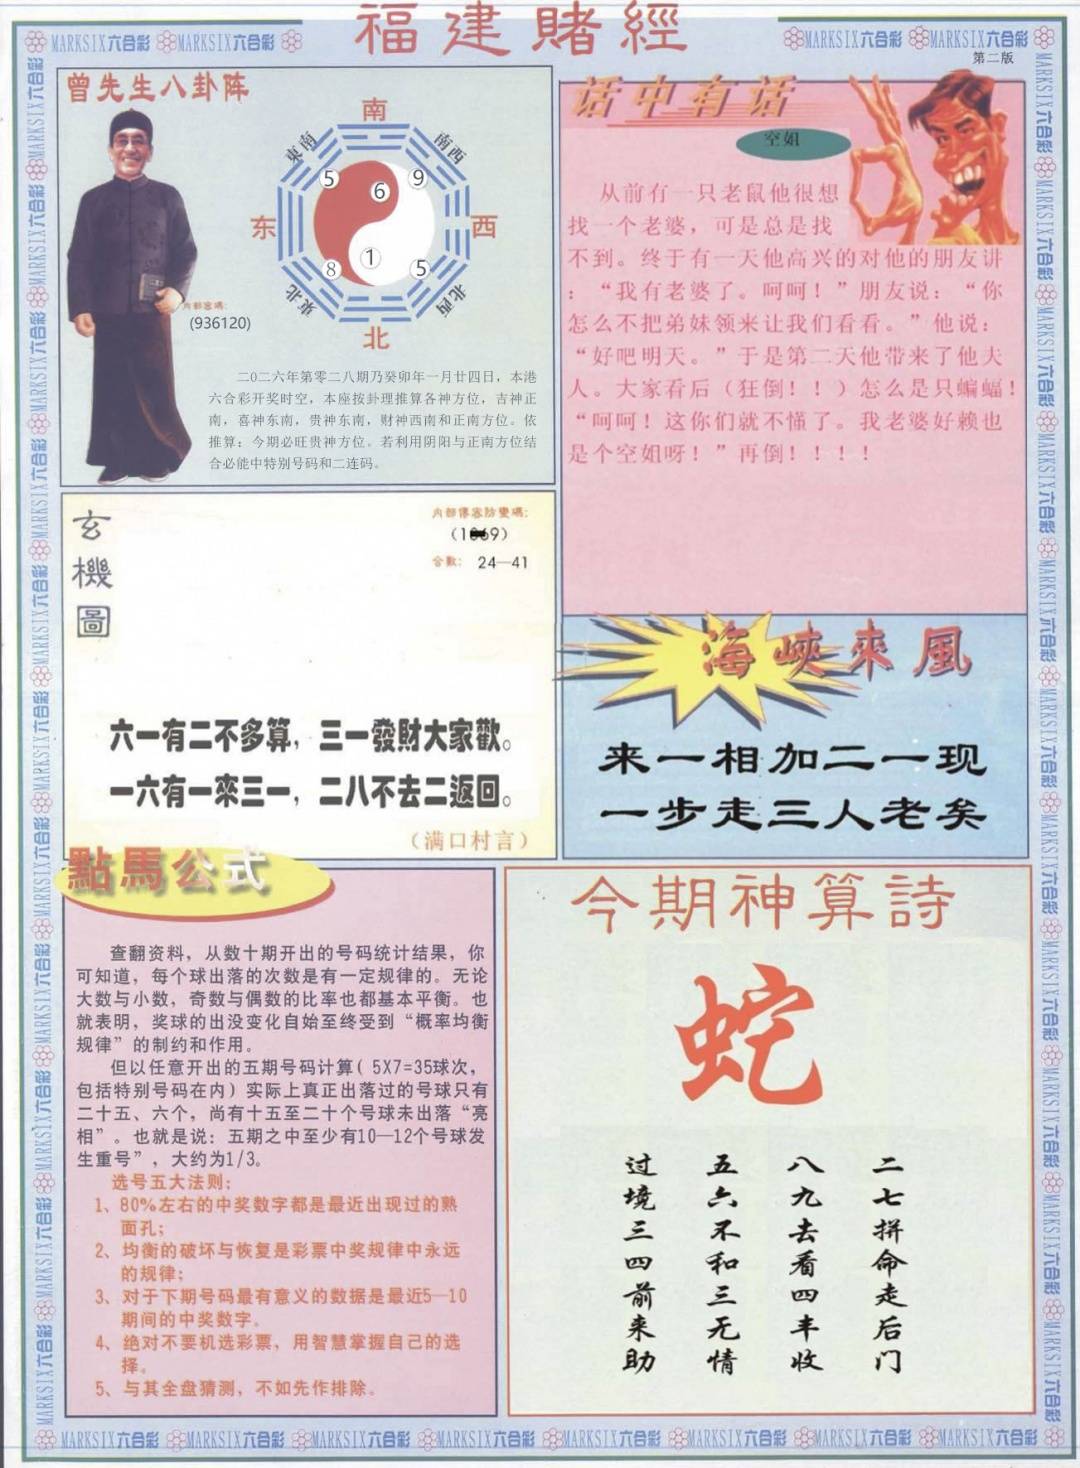 福建賭經
MARKSIX六合彩 MARKSIX六合彩
MARKSIX六合彩 MARKSIX六合彩
第二版
曾先生八卦阵
南
東南
南西
5
6
9
东
西
8
1
5
東北
北西
北
内部密碼:
(936120)
二0二六年第零二八期乃癸卯年一月廿四日，本港
六合彩开奖时空，本座按卦理推算各神方位，吉神正
南，喜神东南，贵神东南，财神西南和正南方位。依
推算：今期必旺贵神方位。若利用阴阳与正南方位结
合必能中特别号码和二连码。
话中有话
空姐
从前有一只老鼠他很想
找一个老婆，可是总是找
不到。终于有一天他高兴的对他的朋友讲
：“我有老婆了。呵呵！”朋友说：“你
怎么不把弟妹领来让我们看看。”他说：
“好吧明天。”于是第二天他带来了他夫
人。大家看后（狂倒！！）怎么是只蝙蝠！
“呵呵！这你们就不懂了。我老婆好赖也
是个空姐呀！”再倒！！！！
玄機圖
内部傳密防變碼:
合數: 24—41
六一有二不多算，三一發財大家歡。
一六有一來三一，二八不去二返回。
（满口村言）
海峽來風
来一相加二一现
一步走三人老矣
點馬公式
查翻资料，从数十期开出的号码统计结果，你
可知道，每个球出落的次数是有一定规律的。无论
大数与小数，奇数与偶数的比率也都基本平衡。也
就表明，奖球的出没变化自始至终受到“概率均衡
规律”的制约和作用。
但以任意开出的五期号码计算( 5X7=35球次，
包括特别号码在内）实际上真正出落过的号球只有
二十五、六个，尚有十五至二十个号球未出落“亮
相”。也就是说：五期之中至少有10—12个号球发
生重号”，大约为1/3。
选号五大法则:
1、80%左右的中奖数字都是最近出现过的熟
面孔;
2、均衡的破坏与恢复是彩票中奖规律中永远
的规律;
3、对于下期号码最有意义的数据是最近5—10
期间的中奖数字。
4、绝对不要机选彩票，用智慧掌握自己的选
择。
5、与其全盘猜测，不如先作排除。
今期神算詩
蛇
二七拼命走后门
八九去看四丰收
五六不和三无情
过境三四前来助
MARKSIX六合彩 MARKSIX六合彩 MARKSIX六合彩 MARKSIX六合彩 MARKSIX六合彩 MARKSIX六合彩 MARKSIX六合彩 MARKSIX六合彩